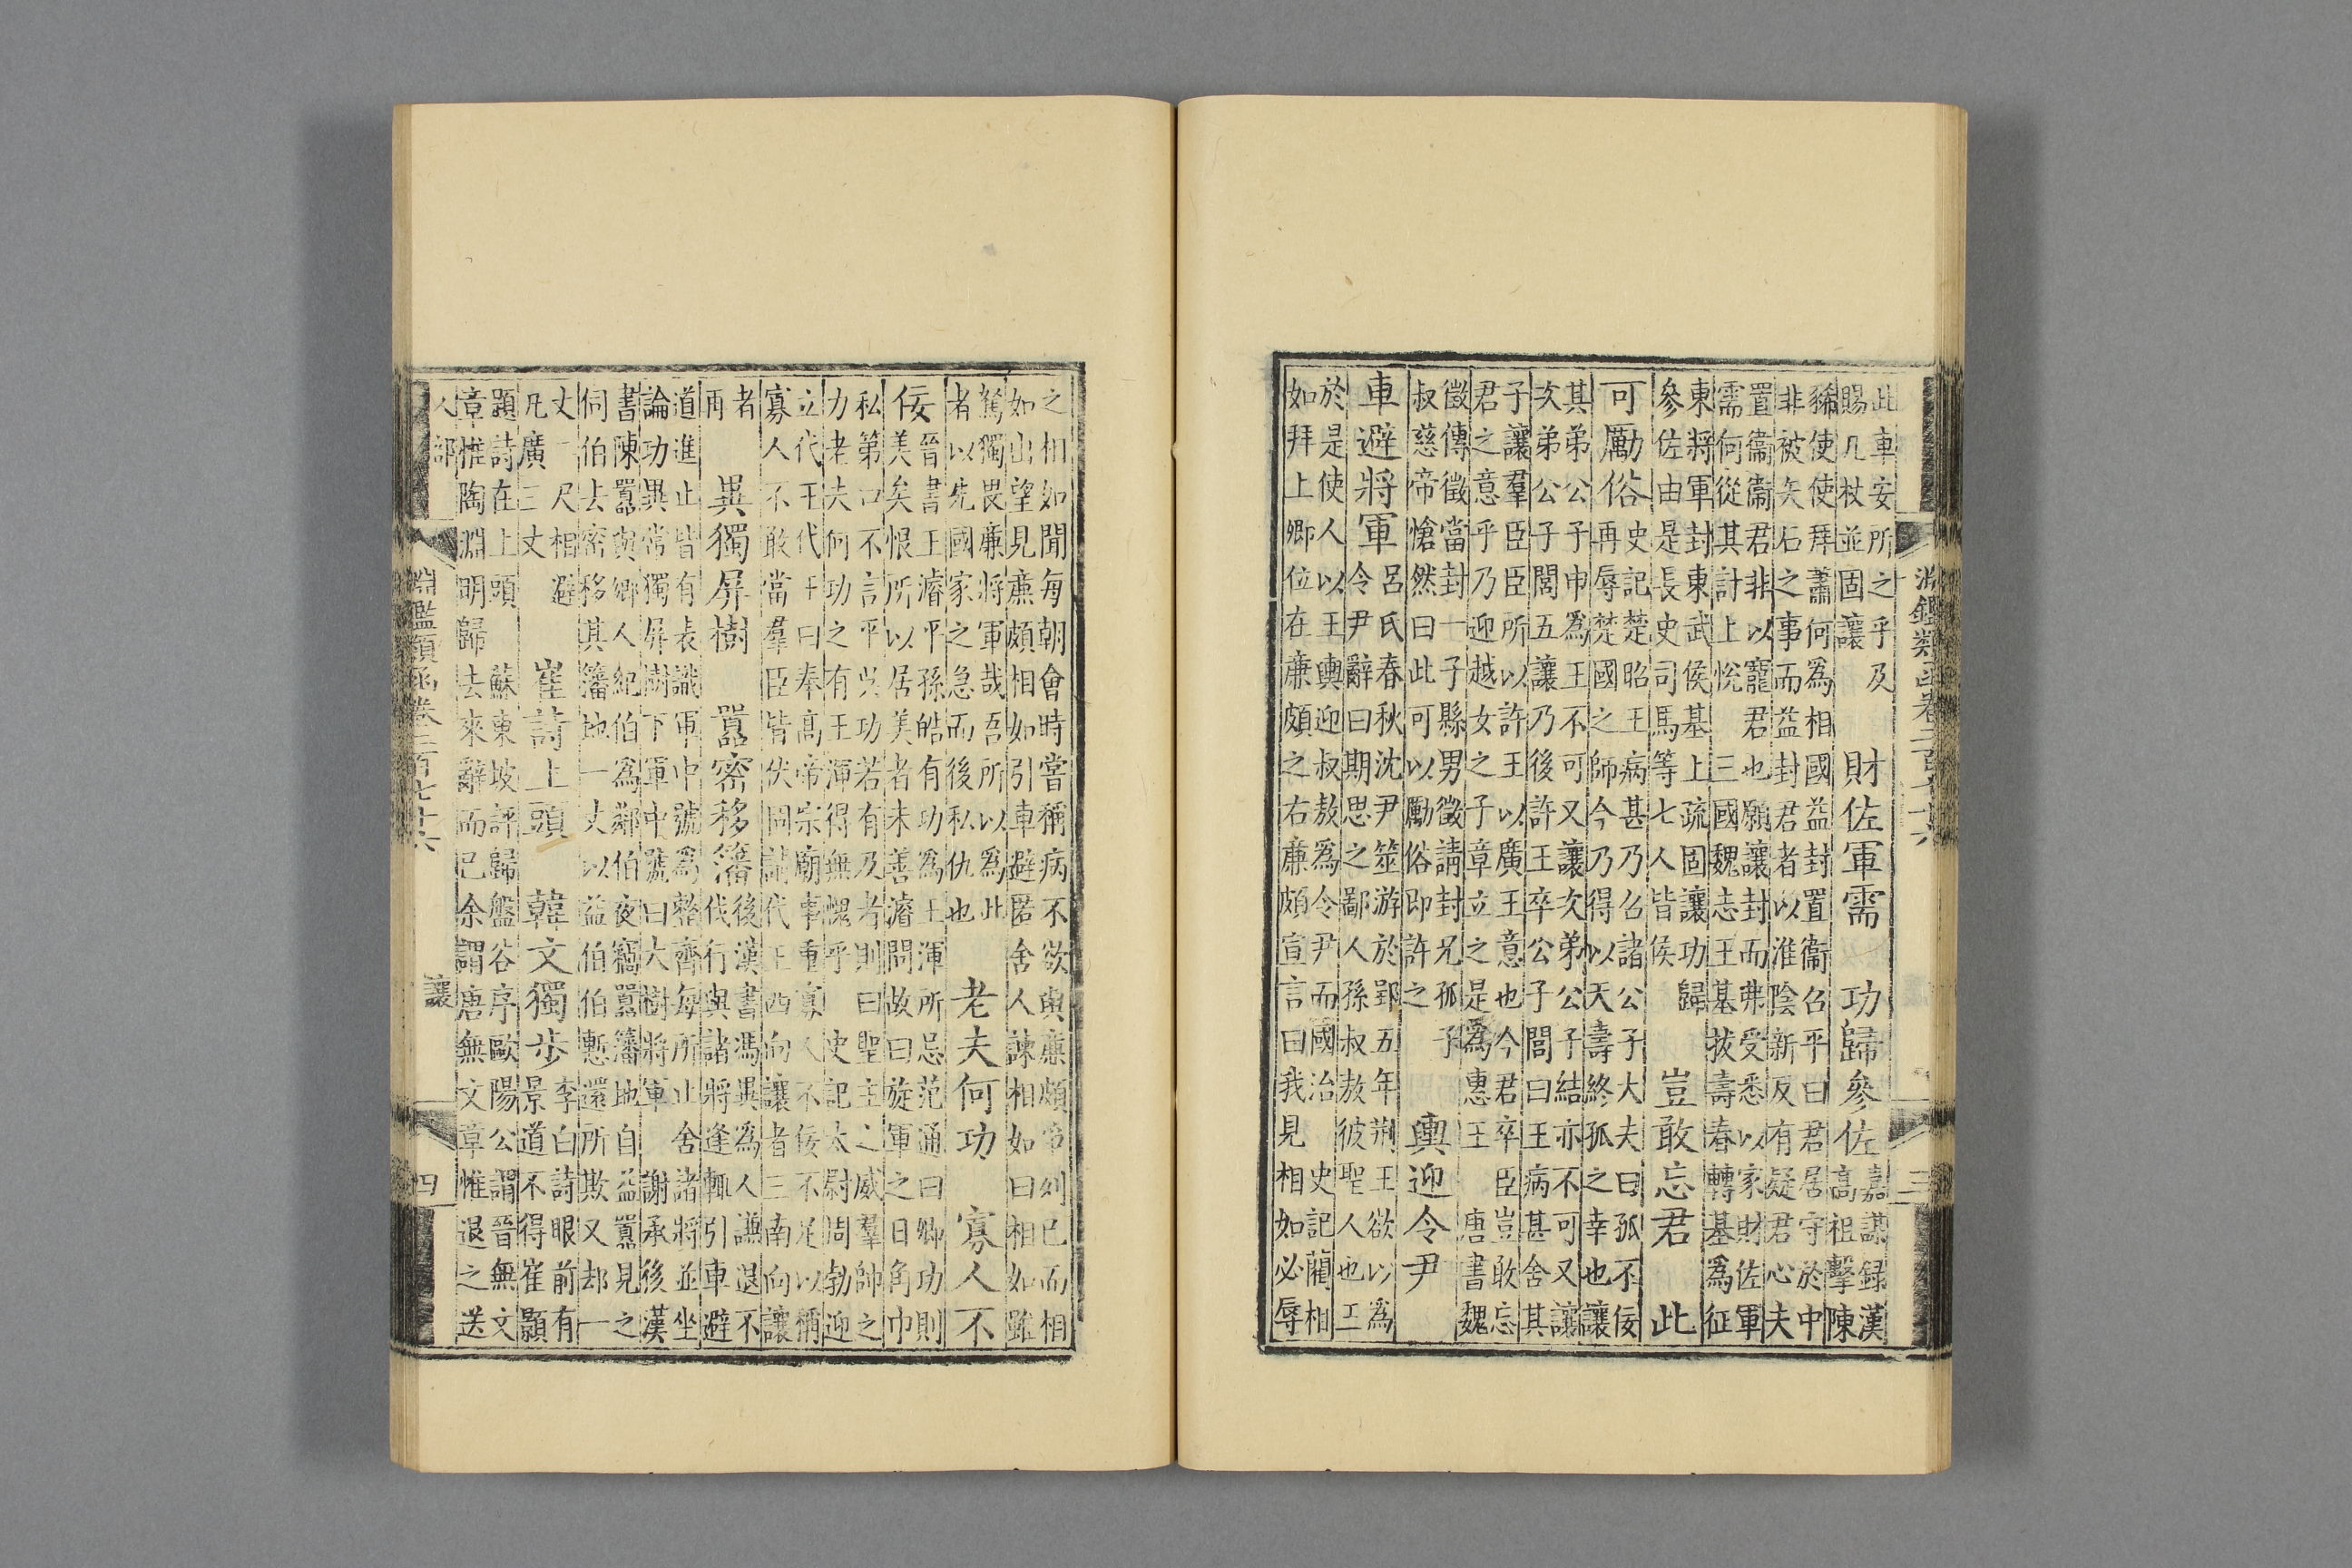 淵鑑類函卷三百七十六 三
此車安所之乎及賜几杖並固讓 財佐軍需 功歸參佐 嘉謀録漢高祖擊陳
豨使使拜蕭何為相國益封置衞召平曰君居守於中
非被矢石之事而益封君者以淮陰新反有疑君心夫
置衞衞君非以寵君也願讓封而弗受悉以家財佐軍
需何從其計上悅 三國魏志王基拔壽春轉基為征
東將軍封東武侯基上疏固讓功歸參佐由是長史司馬等七人皆侯 豈敢忘君 此
可勵俗 史記楚昭王病甚乃召諸公子大夫曰孤不佞
再辱楚國之師今乃得以天壽終孤之幸也讓
其弟公子申為王不可又讓次弟公子結亦不可又讓
次弟公子閭五讓乃後許王卒公子閭曰王病甚舍其
子讓羣臣臣所以許王以廣王意也今君卒臣豈敢忘
君之意乎乃迎越女之子章立之是為惠王 唐書魏
徵傳徵當封一子縣男徵請封兄孤子叔慈帝愴然曰此可以勵俗即許之 輿迎令尹
車避將軍 呂氏春秋沈尹筮游於郢五年荆王欲以為
令尹辭曰期思之鄙人孫叔敖彼聖人也王
於是使人以王輿迎叔敖為令尹而國治 史記藺相
如拜上卿位在廉頗之右廉頗宣言曰我見相如必辱
之相如聞每朝會時嘗稱病不欲與廉頗爭列已而相
如出望見廉頗相如引車避匿舍人諫相如曰相如雖
駑獨畏廉將軍哉吾所以為此者以先國家之急而後私仇也 老夫何功 寡人不
佞 晉書王濬平孫皓有功為王渾所忌范通曰卿功則
美矣恨所以居美者未善濬問故曰旋軍之日角巾
私第口不言平吳功若有及者則曰聖主之威羣帥之
力老夫何功之有王渾得無愧乎 史記太尉周勃迎
立代王代王曰奉高帝宗廟事重寡人不佞不足以稱
寡人不敢當羣臣皆伏固請代王西向讓者三南向讓
者再 異獨屏樹 囂密移籓 後漢書馮異為人謙退不伐行與諸將逢輒引車避
道進止皆有表識軍中號為整齊每所止舍諸將並坐
論功異常獨屏樹下軍中號曰大樹將軍 謝承後漢
書陳囂與鄉人紀伯為鄰伯夜竊囂籓地自益囂見之
伺伯去密移其籓地一丈以益伯伯慙還所欺又却一
丈二尺相避凡廣三丈 崔詩上頭 韓文獨步 李白詩眼前有景道不得崔顥
題詩在上頭 蘇東坡評歸盤谷序歐陽公謂晉無文
章惟陶淵明歸去來辭而已余謂唐無文章惟退之送
人部 淵鑑類函卷三百七十六 讓 四